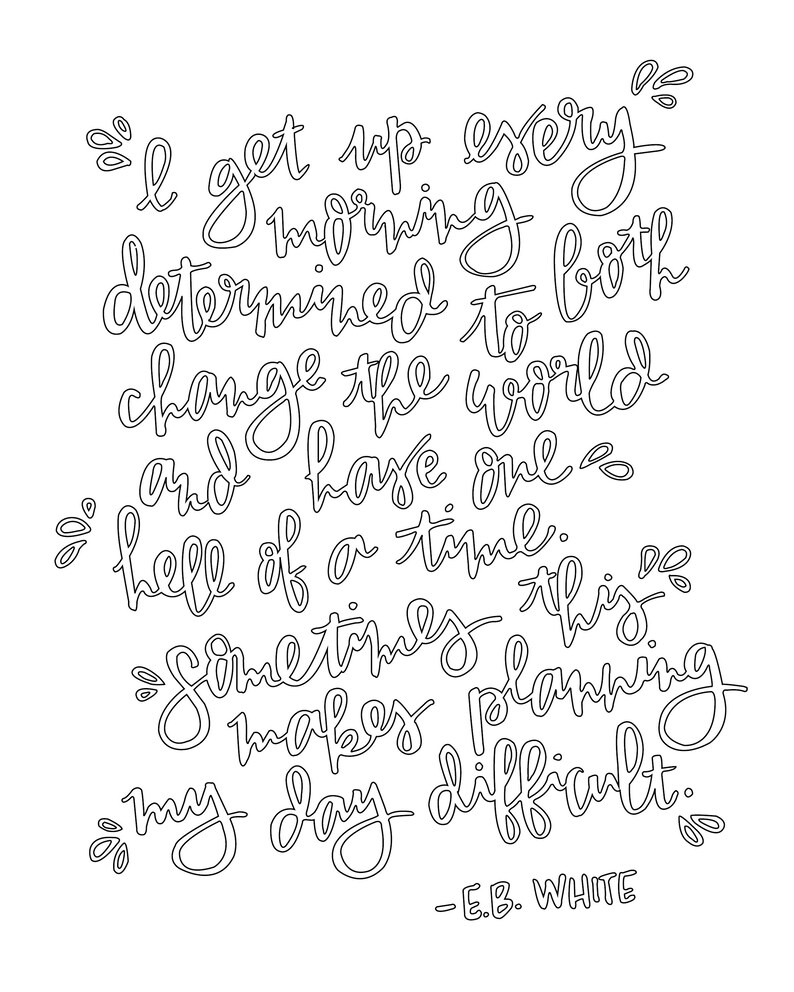 I get up every
morning
determined to both
change the world
and have one
hell of a time.
Sometimes this
makes planning
my day difficult.
-E.B. WHITE